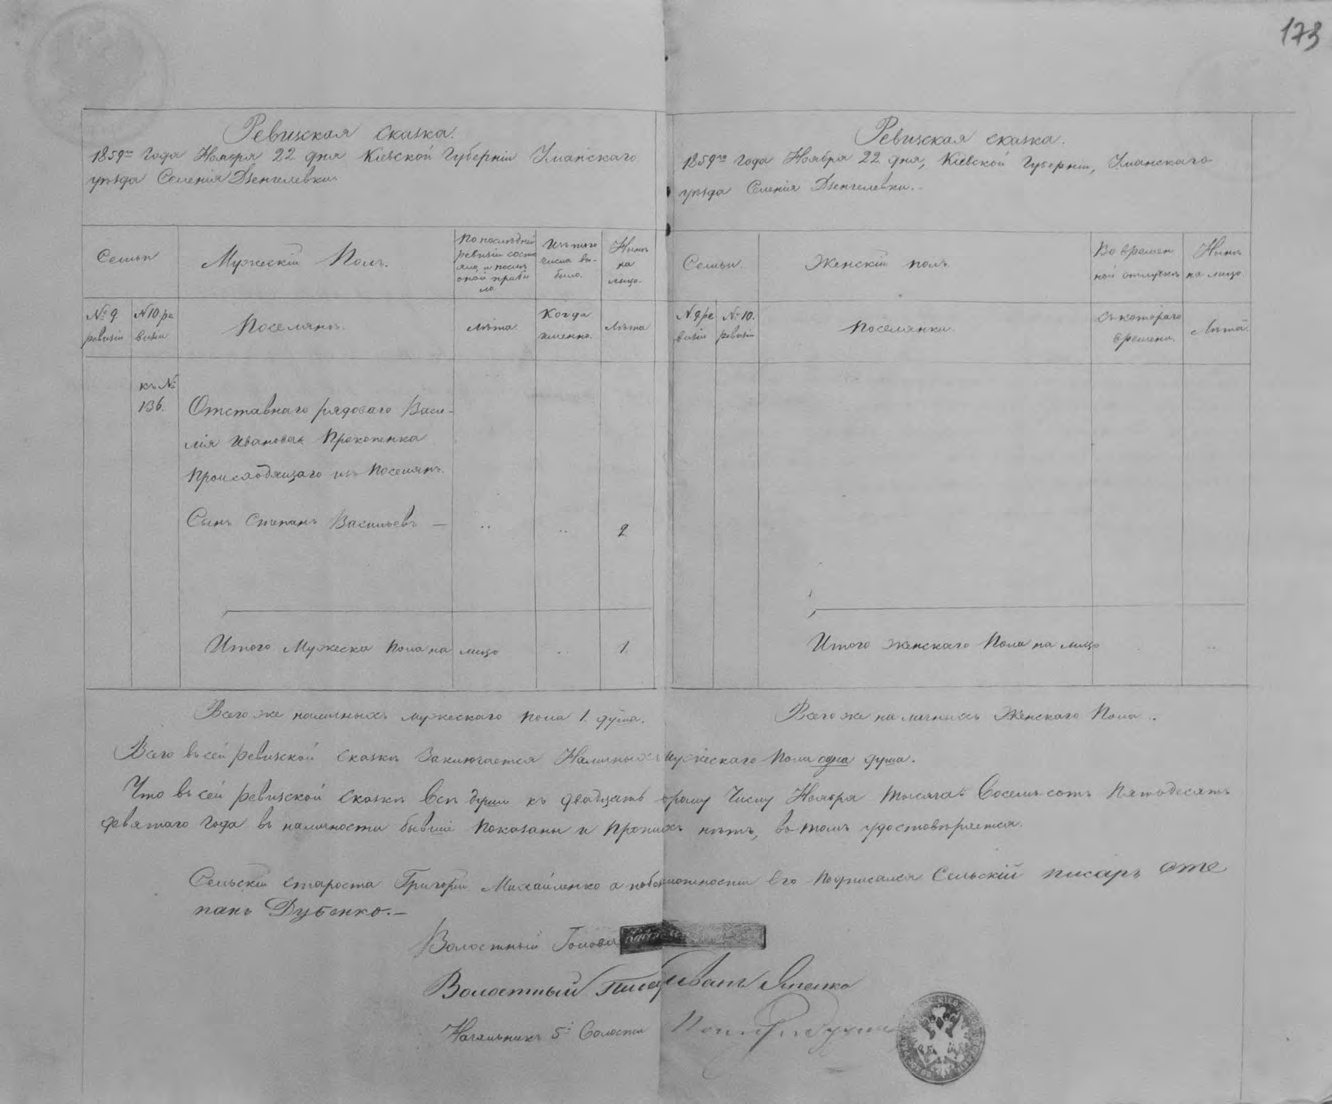 173
Ревизская сказка.
1859го Года Ноября 22 дня Кіевской Губерніи Уманскаго
уѣзда Селенія Дзенгелевки
Семьи
Мужескій Полъ.
По послѣдней ревизіи состояло и послѣ оной прибыло.
Изъ того числа выбыло.
Нынѣ на лицо.
№ 9 ревизіи
№ 10 ревизіи
Поселянъ.
Лѣта
Когда именно.
Лѣта
къ №
136.
Отставнаго рядоваго Васи-
лія Иванова Прокопенка
Происходящаго изъ Поселянъ.
Сынъ Степанъ Васильевъ —
2
Итого Мужеска Пола на лицо
1.
Всего же наличныхъ мужескаго пола 1. душа.
Ревизская сказка.
1859го Года Ноября 22 дня, Кіевской Губерніи, Уманскаго
уѣзда Селенія Дзенгелевки.
Семьи
Женскій полъ.
Во временной отлучкѣ
Нынѣ на лицо
№ 9 ревизіи
№ 10. ревизіи
Поселянки.
Съ котораго времени.
Лѣта
Итого Женскаго Пола на лицо
Всего же наличныхъ Женскаго Пола.
Всего въ сей ревизской сказкѣ Заключается Наличныхъ Мужескаго Пола одна душа.
Что въ сей ревизской сказкѣ Всѣ души къ двадцать второму Числу Ноября Тысяча Восемьсотъ Пятьдесятъ
девятаго Года въ наличности бывшіе Показаны и Прописныхъ нѣтъ, въ томъ удостовѣряется.
Сельскій староста Григорій Михайленко а неграмотности его подписался Сельскій писарь Сте
панъ Дубенко.—
Волостный Голова
Волостный Писарь Иванъ
Начальникъ 5й Волости